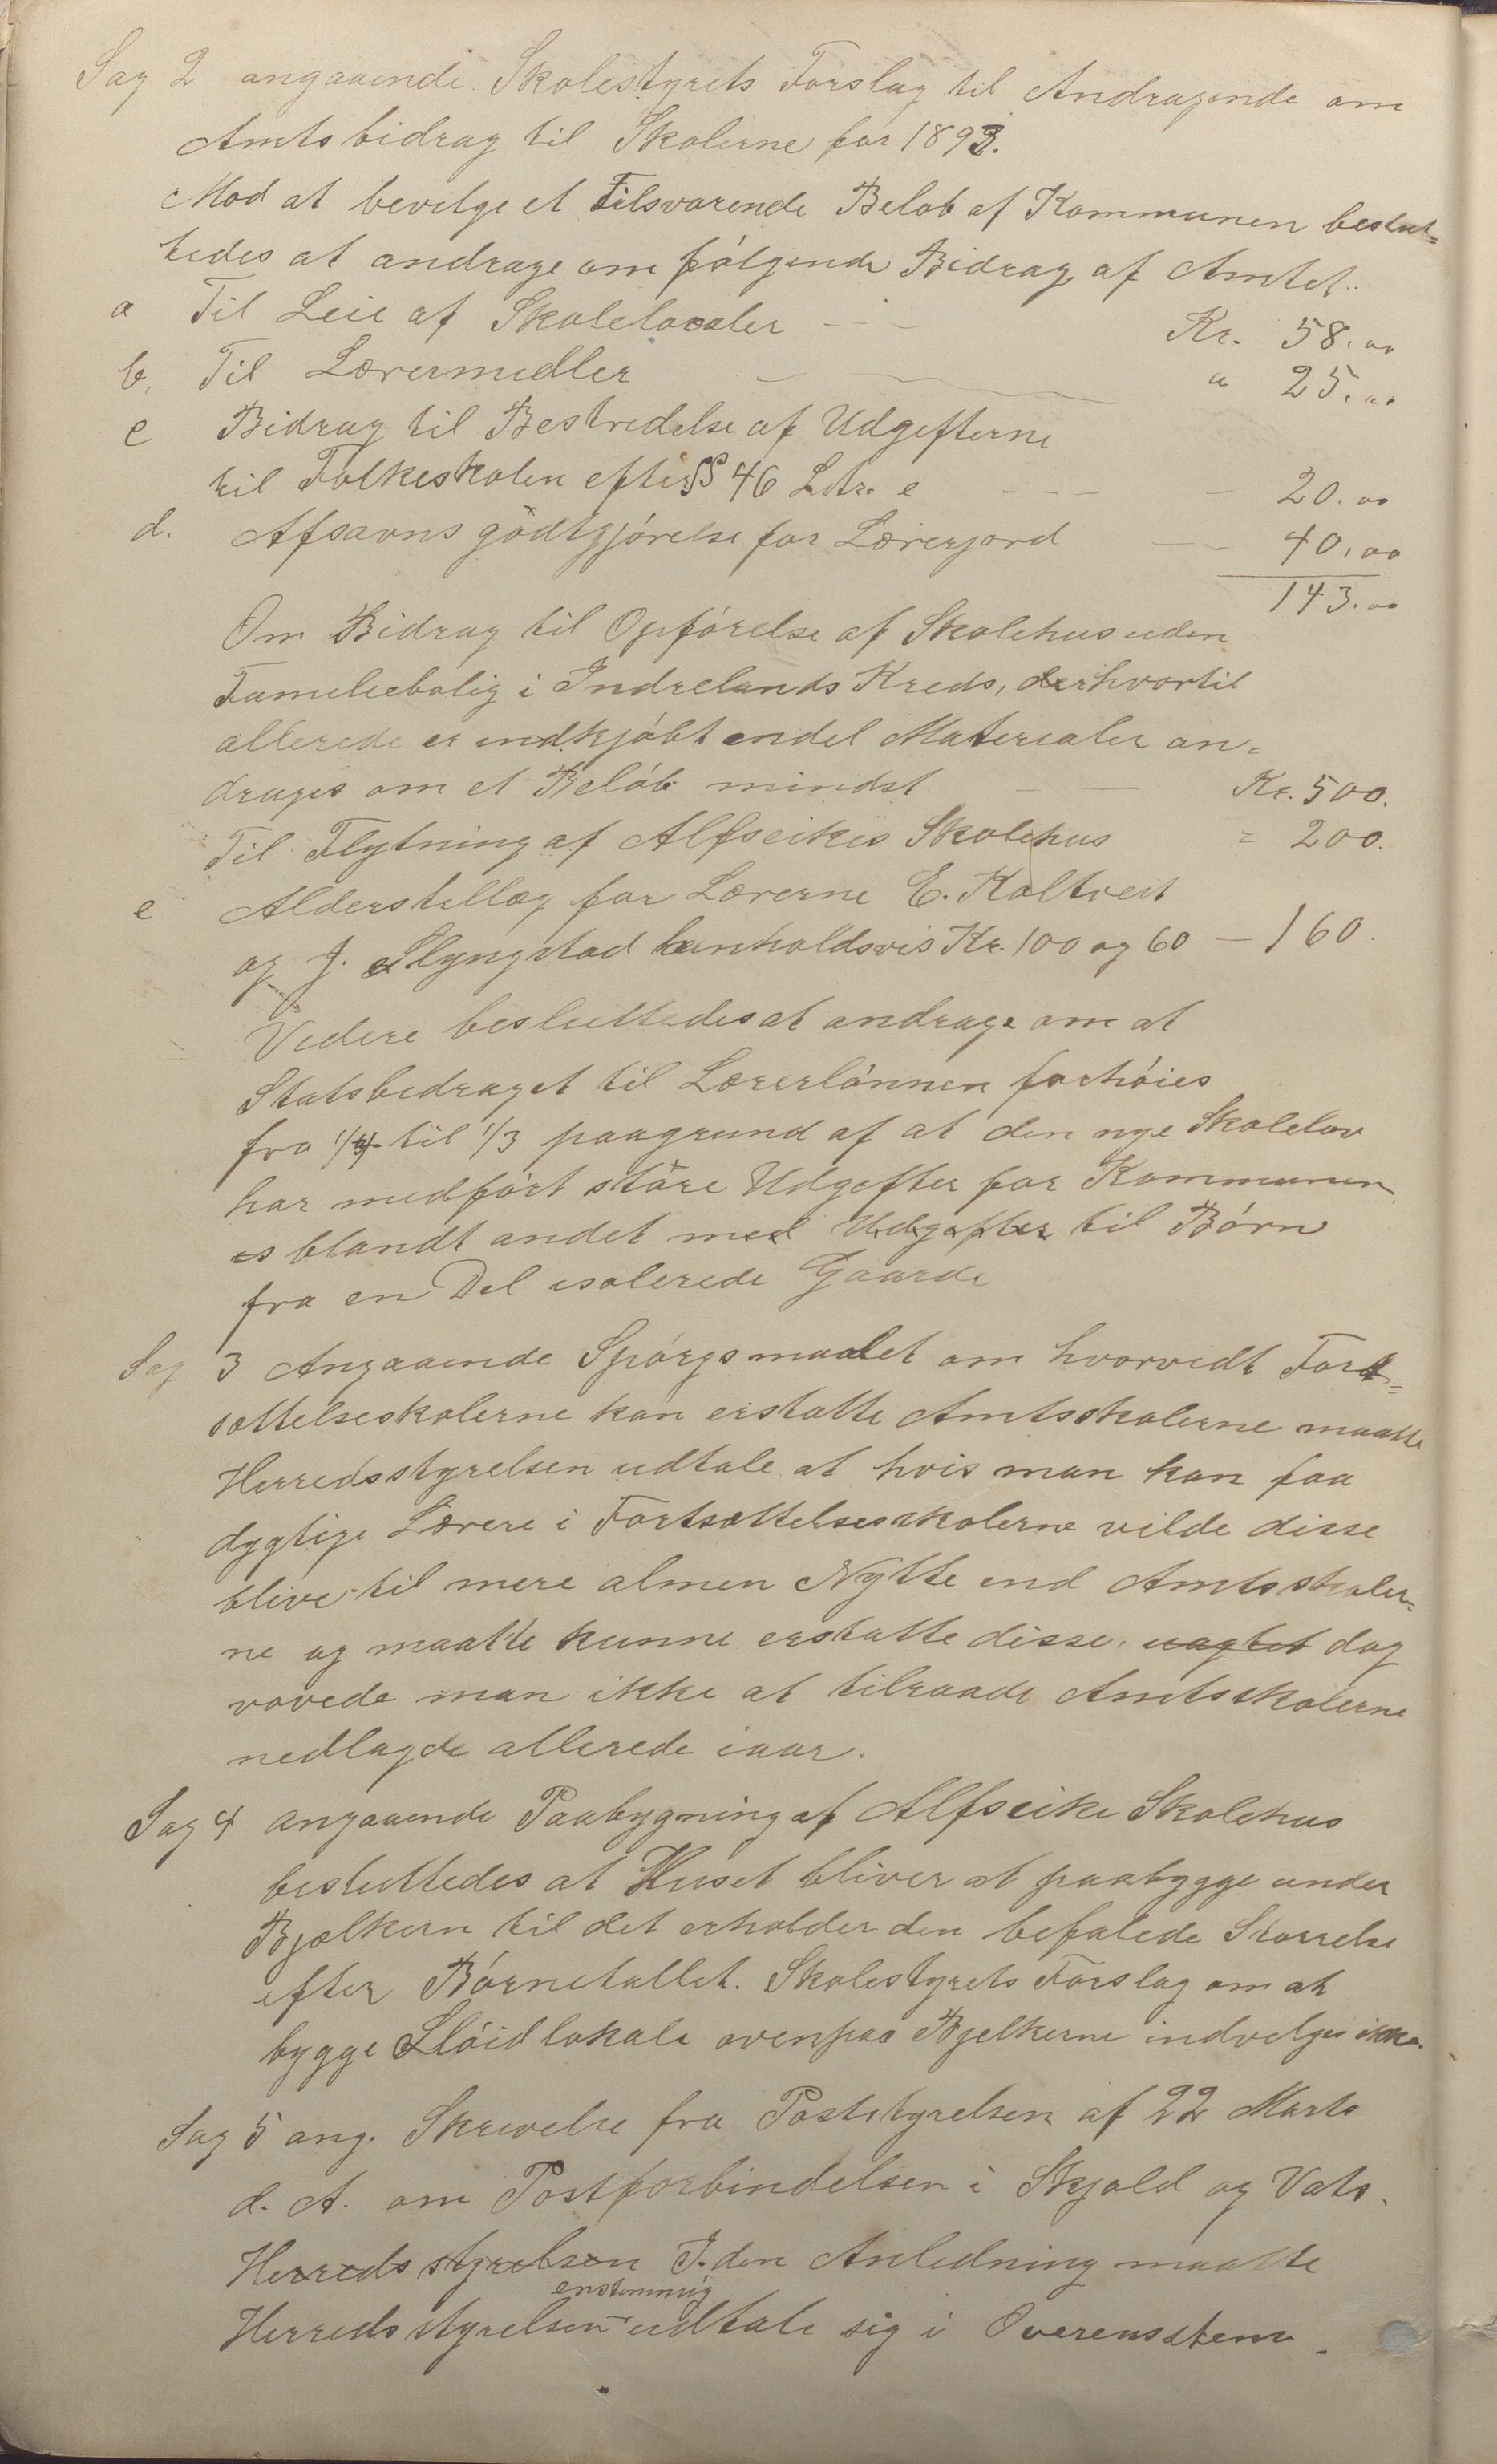 Sag 2 angaaende Skolestyrets Forslag til Andragende om
Amtsbidrag til Skolerne for 1893.
Mod at bevilge et Tilsvarende Beløb af Kommunen beslut=
tedes at andrage om følgende Bidrag af Amtet.
a Til Leie af Skolelocaler - - - Kr. 58.00
b. Til Lærermidler — " 25.00
c Bidrag til Bestridelse af Udgifterne
til Folkeskolen efter §§ 46 Litr. e - - - - 20.00
d. Afsavnsgodtgjørelse for Lærerjord — 40.00
143.00
Om Bidrag til Opførelse af Skolehus uden
Familiebolig i Indrelands Kreds, hvortil
allerede er indkjøbt endel Materialer an=
drages om et Beløb mindst — — Kr. 500.
Til Flytning af Alfseikes Skolehus = 200.
e Alderstillæg for Lærerne E. Koltveit
og J. Slyngstad henholdsvis Kr. 100 og 60 — 160.
Videre besluttedes at andrage om at
Statsbidraget til Lærerlønnen forhøies
fra 1/4 til 1/3 paagrund af at den nye Skolelov
har medført støre Udgifter for Kommunen
blandt andet med Udgifter til Børn
fra en Del isolerede Gaarde
Sag 3 Angaaende Spørgsmaalet om hvorvidt Fort=
sættelseskolerne kan erstatte Amtsskolerne maatte
Herredsstyrelsen udtale at hvis man kan faa
dygtige Lærere i Fortsættelsesskolerne vilde disse
blive til mere almen Nytte end Amtsskoler=
ne og maatte kunne erstatte disse, uagtet dog
vovede man ikke at tilraade Amtsskolerne
nedlagde allerede iaar.
Sag 4 angaaende Paabygning af Alfseike Skolehus
besluttedes at Huset bliver at paabygge under
Bjælkern til det erholder den befalede Størrelse
efter Børnetallet. Skolestyrets Forslag om at
bygge Sløidlokale ovenpaa Bjelkerne indvelges ikke.
Sag 5 ang. Skrivelse fra Poststyrelsen af 22 Marts
d. A. om Postforbindelsen i Skjold og Vats.
Herredsstyrelsen I den Anledning maatte
enstemmig
Herredsstyrelsen udtale sig i Overensstem